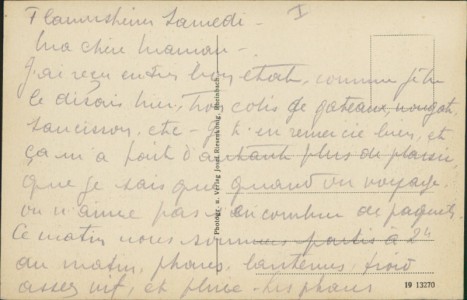 Flammersheim Samedi - I
Ma chère Maman -
J'ai reçu en très bon état, comme je te
le disais hier, ton colis de gateaux, nougat,
saucisson, etc - Je t'en remercie bien, et
ça m'a fait d'autant plus de plaisir,
que je sais que quand on voyage
on n'aime pas s'encombrer de paquets
Ce matin nous sommes partis à 2h
du matin, phares, lanternes, froid
assez vif, et pluie - Les phares
Photogr. u. Verlag Josef Riesenkönig, Rheinbach
19 13270